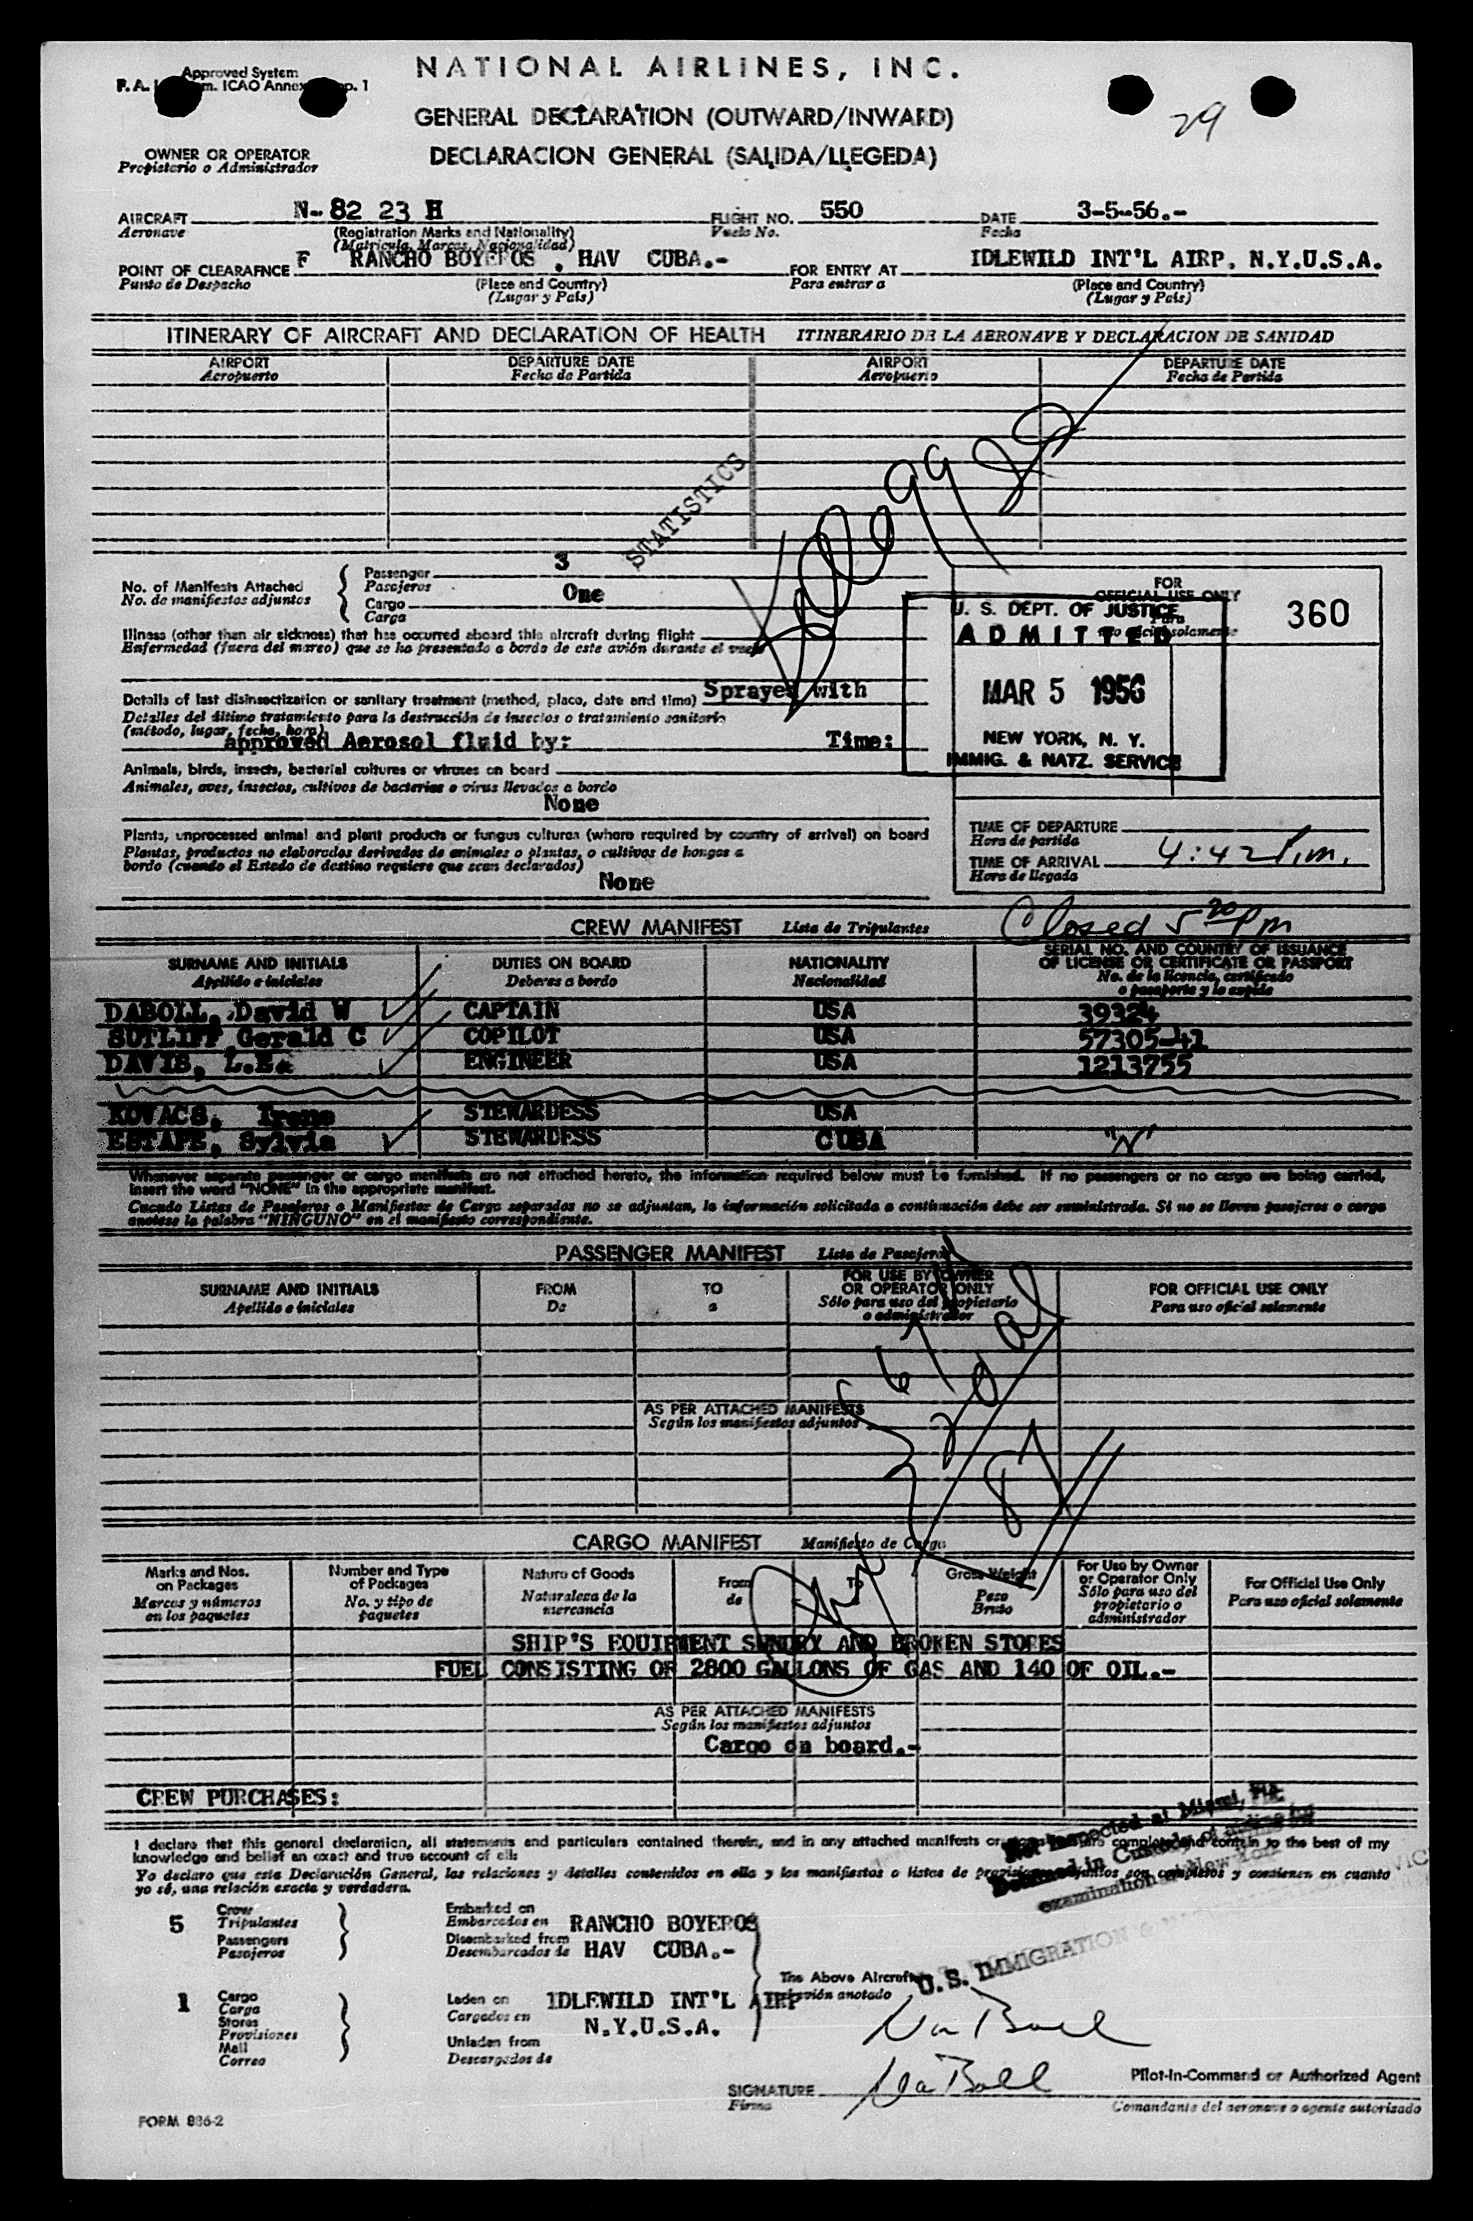 Approved System
NATIONAL AIRLINES, INC.
GENERAL DECLARATION (OUTWARD/INWARD)
29
OWNER OR OPERATOR
Propietario o Administrador
DECLARACION GENERAL (SALIDA/LLEGEDA)
AIRCRAFT N-82 23 H FLIGHT NO. 550 DATE 3-5-56.-
Aeronave (Registration Marks and Nationality) Vuelo No. Fecha
(Matricula, Marcas, Nacionalidad)
POINT OF CLEARAFNCE F RANCHO BOYEROS . HAV CUBA.- FOR ENTRY AT IDLEWILD INT'L AIRP. N.Y.U.S.A.
Punto de Despacho (Place and Country) Para entrar a (Place and Country)
(Lugar y País) (Lugar y País)
ITINERARY OF AIRCRAFT AND DECLARATION OF HEALTH ITINERARIO DE LA AERONAVE Y DECLARACION DE SANIDAD
AIRPORT DEPARTURE DATE AIRPORT DEPARTURE DATE
Aeropuerto Fecha de Partida Aeropuerto Fecha de Partida
STATISTICS
No. of Manifests Attached Passenger 3
No. de manifiestos adjuntos Pasajeros
Cargo One
Carga
FOR
OFFICIAL USE ONLY
Para
uso oficial solamente
360
U. S. DEPT. OF JUSTICE
ADMITTED
MAR 5 1956
NEW YORK, N. Y.
IMMIG. & NATZ. SERVICE
Illness (other than air sickness) that has occurred aboard this aircraft during flight
Enfermedad (fuera del mareo) que se ha presentado a bordo de este avión durante el vuelo
Details of last disinsectization or sanitary treatment (method, place, date and time) Sprayed with
Detalles del último tratamiento para la destrucción de insectos o tratamiento sanitario
(método, lugar, fecha, hora)
approved Aerosol fluid by: Time:
Animals, birds, insects, bacterial cultures or viruses on board
Animales, aves, insectos, cultivos de bacterias o virus llevados a bordo
None
Plants, unprocessed animal and plant products or fungus cultures (where required by country of arrival) on board
Plantas, productos no elaborados derivados de animales o plantas, o cultivos de hongos a
bordo (cuando el Estado de destino requiere que sean declarados)
None
TIME OF DEPARTURE
Hora de partida
TIME OF ARRIVAL 4:42 P.m.
Hora de llegada
Closed 5 20 pm
CREW MANIFEST Lista de Tripulantes
SURNAME AND INITIALS DUTIES ON BOARD NATIONALITY SERIAL NO. AND COUNTRY OF ISSUANCE
OF LICENSE OR CERTIFICATE OR PASSPORT
Apellido e iniciales Deberes a bordo Nacionalidad No. de la licencia, certificado
o pasaporte y lo expide
DABOLL, David W CAPTAIN USA 39324
SUTLIFF Gerald C COPILOT USA 57305-41
DAVIS, L.E. ENGINEER USA 1213755
KOVACS, Irene STEWARDESS USA
ESTAPE, Sylvia STEWARDESS CUBA "N"
Whenever separate passenger or cargo manifests are not attached hereto, the information required below must be furnished. If no passengers or no cargo are being carried,
insert the word "NONE" in the appropriate manifest.
Cuando Listas de Pasajeros o Manifiestos de Carga separados no se adjuntan, la información solicitada a continuación debe ser suministrada. Si no se lleven pasajeros o carga
anotese la palabra "NINGUNO" en el manifiesto correspondiente.
PASSENGER MANIFEST Lista de Pasajeros
SURNAME AND INITIALS FROM TO FOR USE BY OWNER
OR OPERATOR ONLY FOR OFFICIAL USE ONLY
Apellido e iniciales De a Sólo para uso del propietario
o administrador Para uso oficial solamente
AS PER ATTACHED MANIFESTS
Según los manifiestos adjuntos
CARGO MANIFEST Manifiesto de Carga
Marks and Nos.
on Packages
Marcas y números
en los paquetes
Number and Type
of Packages
No. y tipo de
paquetes
Nature of Goods
Naturaleza de la
mercancia
From
de
To
Gross Weight
Peso
Bruto
For Use by Owner
or Operator Only
Sólo para uso del
propietario o
administrador
For Official Use Only
Para uso oficial solamente
SHIP'S EQUIPMENT SUNDRY AND BROKEN STORES
FUEL CONSISTING OF 2800 GALLONS OF GAS AND 140 OF OIL.-
AS PER ATTACHED MANIFESTS
Según los manifiestos adjuntos
Cargo on board.-
CREW PURCHASES:
Not Inspected at Miami, Fla.
I declare that this general declaration, all statements and particulars contained therein, and in any attached manifests or to the best of my
knowledge and belief an exact and true account of all:
Yo declaro que esta Declaración General, las relaciones y detalles contenidos en ella y los manifiestos o listas de son completos y contienen en cuanto
yo sé, una relación exacta y verdadera.
examination New York
U.S. IMMIGRATION &
5 Crew
Tripulantes
Passengers
Pasajeros
Embarked on
Embarcados en RANCHO BOYEROS
Disembarked from
Desembarcados de HAV CUBA.-
The Above Aircraft
avión anotado
1 Cargo
Carga
Stores
Provisiones
Mail
Correo
Laden on IDLEWILD INT'L AIRP
Cargados en N.Y.U.S.A.
Unladen from
Descargados de
DaBoll
SIGNATURE DaBoll
Firma
Pilot-In-Command or Authorized Agent
Comandante del aeronave o agente autorizado
FORM 836-2